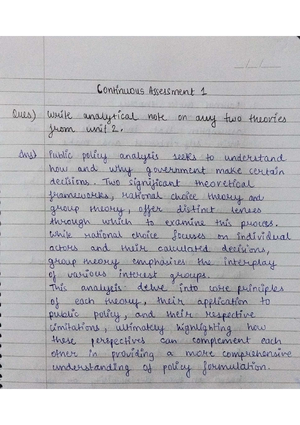 Continuous Assessment 1
Ques) Write analytical note on any two theories
from unit 2.
Ans) Public policy analysis seeks to understand
how and why government make certain
decisions. Two significant theoretical
frameworks, rational choice theory and
group theory, offer distinct lenses
through which to examine this process.
While rational choice focuses on individual
actors and their calculated decisions,
group theory emphasizes the interplay
of various interest groups.
This analysis delve into core principles
of each theory, their application to
public policy, and their respective
limitations, ultimately highlighting how
these perspectives can complement each
other in providing a more comprehensive
understanding of policy formulation.